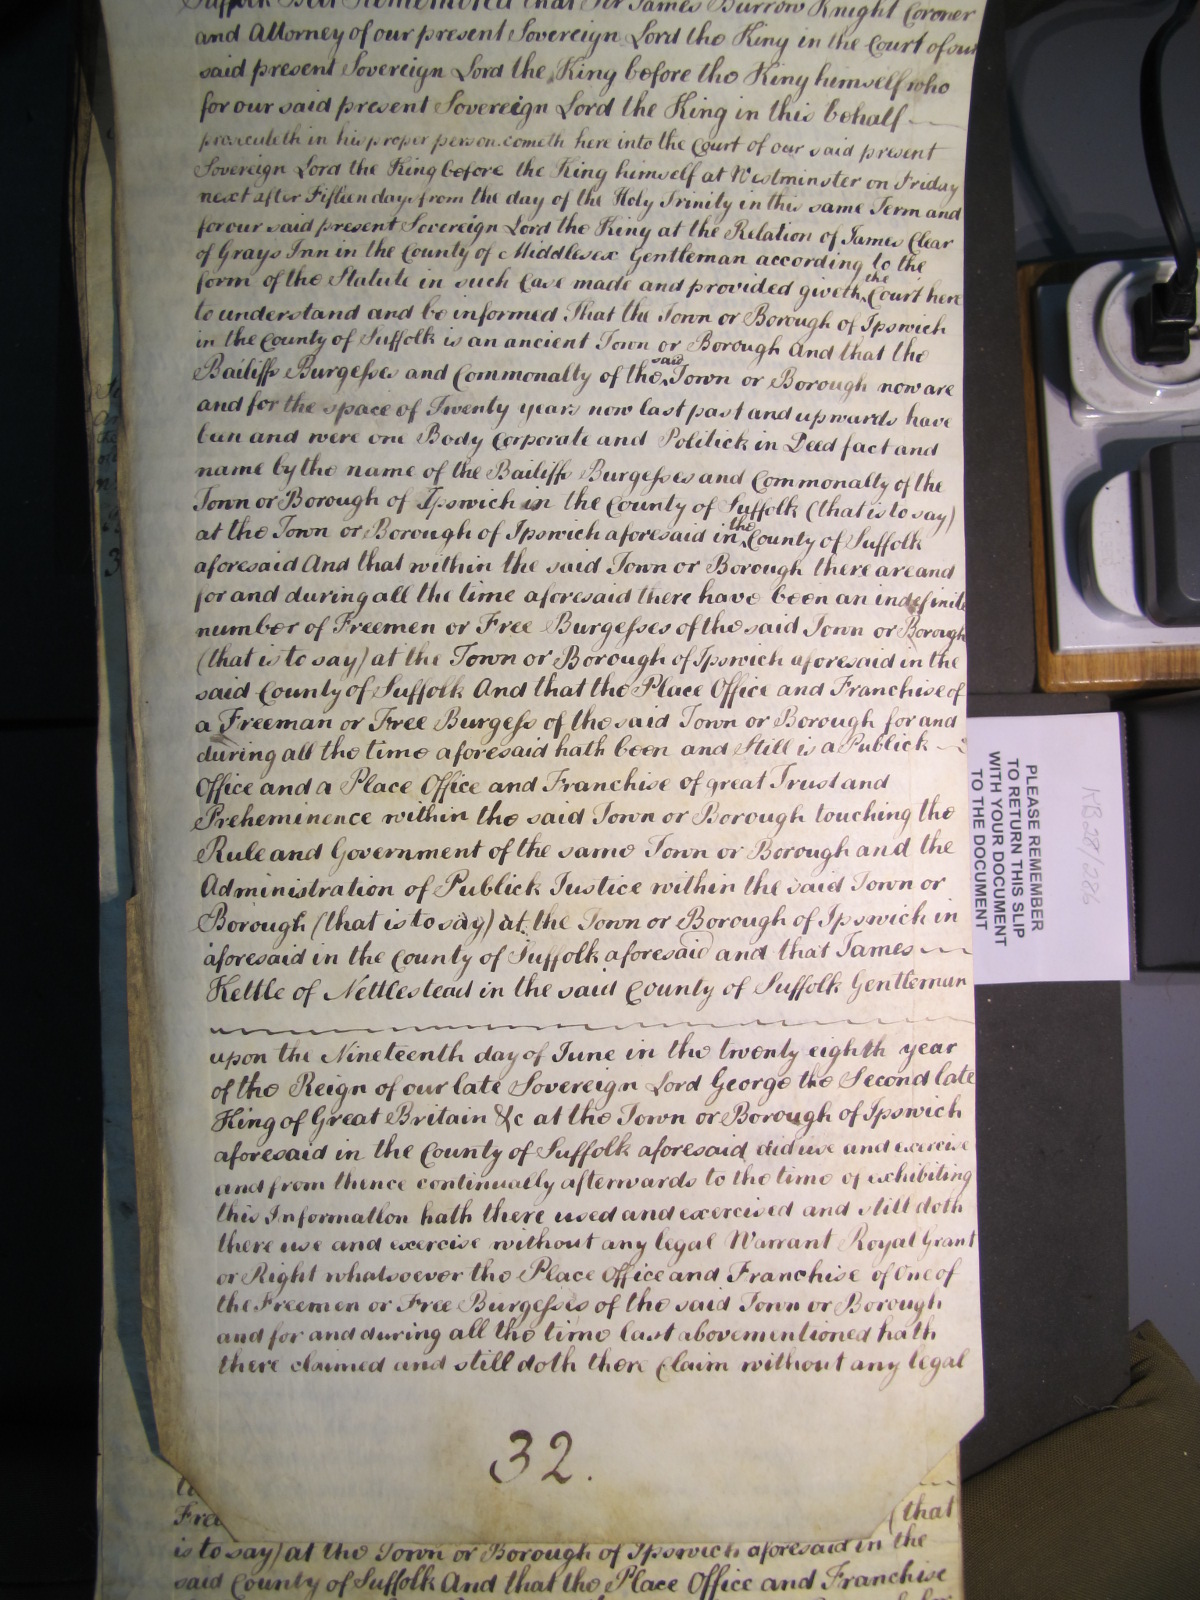 Suffolk Be it Remembered that Sir James Burrow Knight Coroner
and Attorney of our present Sovereign Lord the King in the Court of our
said present Sovereign Lord the King before the King himself who
for our said present Sovereign Lord the King in this behalf
prosecuteth in his proper person cometh here into the Court of our said present
Sovereign Lord the King before the King himself at Westminster on Friday
next after Fifteen days from the day of the Holy Trinity in this same Term and
for our said present Sovereign Lord the King at the Relation of James Clear
of Grays Inn in the County of Middlesex Gentleman according to the
form of the Statute in such Case made and provided giveth the Court here
to understand and be informed That the Town or Borough of Ipswich
in the County of Suffolk is an ancient Town or Borough And that the
Bailiffs Burgesses and Commonalty of the said Town or Borough now are
and for the space of Twenty years now last past and upwards have
been and were one Body Corporate and Politick in Deed fact and
name by the name of the Bailiffs Burgesses and Commonalty of the
Town or Borough of Ipswich in the County of Suffolk (that is to say)
at the Town or Borough of Ipswich aforesaid in the County of Suffolk
aforesaid And that within the said Town or Borough there are and
for and during all the time aforesaid there have been an indefinite
number of Freemen or Free Burgesses of the said Town or Borough
(that is to say) at the Town or Borough of Ipswich aforesaid in the
said County of Suffolk And that the Place Office and Franchise of
a Freeman or Free Burgess of the said Town or Borough for and
during all the time aforesaid hath been and Still is a Publick
Office and a Place Office and Franchise of great Trust and
Preheminence within the said Town or Borough touching the
Rule and Government of the same Town or Borough and the
Administration of Publick Justice within the said Town or
Borough (that is to say) at the Town or Borough of Ipswich in
aforesaid in the County of Suffolk aforesaid and that James
Kettle of Nettlestead in the said County of Suffolk Gentleman
upon the Nineteenth day of June in the twenty eighth year
of the Reign of our late Sovereign Lord George the Second late
King of Great Britain &c at the Town or Borough of Ipswich
aforesaid in the County of Suffolk aforesaid did use and exercise
and from thence continually afterwards to the time of exhibiting
this Information hath there used and exercised and still doth
there use and exercise without any legal Warrant Royal Grant
or Right whatsoever the Place Office and Franchise of One of
the Freemen or Free Burgesses of the said Town or Borough
and for and during all the time last abovementioned hath
there claimed and still doth there claim without any legal
32.
Free
(that
is to say) at the Town or Borough of Ipswich aforesaid in the
said County of Suffolk And that the Place Office and Franchise
PLEASE REMEMBER
TO RETURN THIS SLIP
WITH YOUR DOCUMENT
TO THE DOCUMENT
KB 28/286